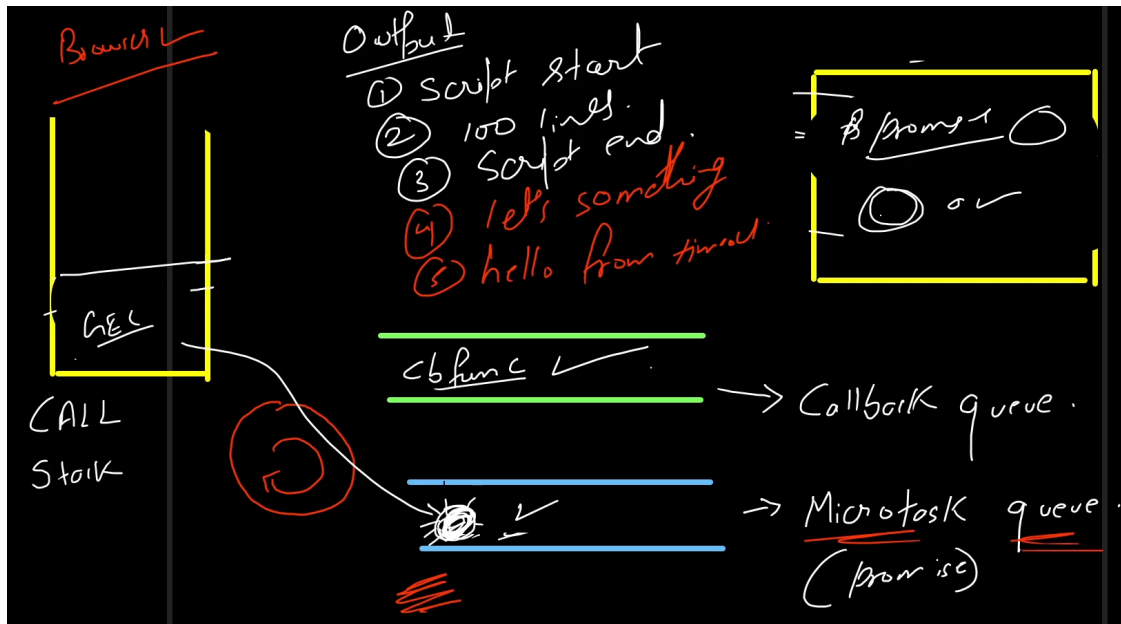 Browser
Output
① Script start
② 100 lines.
③ Script end.
④ let's something
⑤ hello from timeout.
promise
GEC
CALL
Stack
cb func
→ Callback queue.
→ Microtask queue.
(promise)